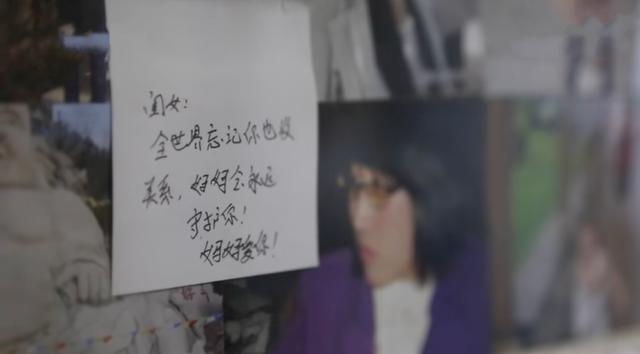 闺女：
全世界忘记你也没
关系，妈妈会永远
守护你！
妈妈爱你！